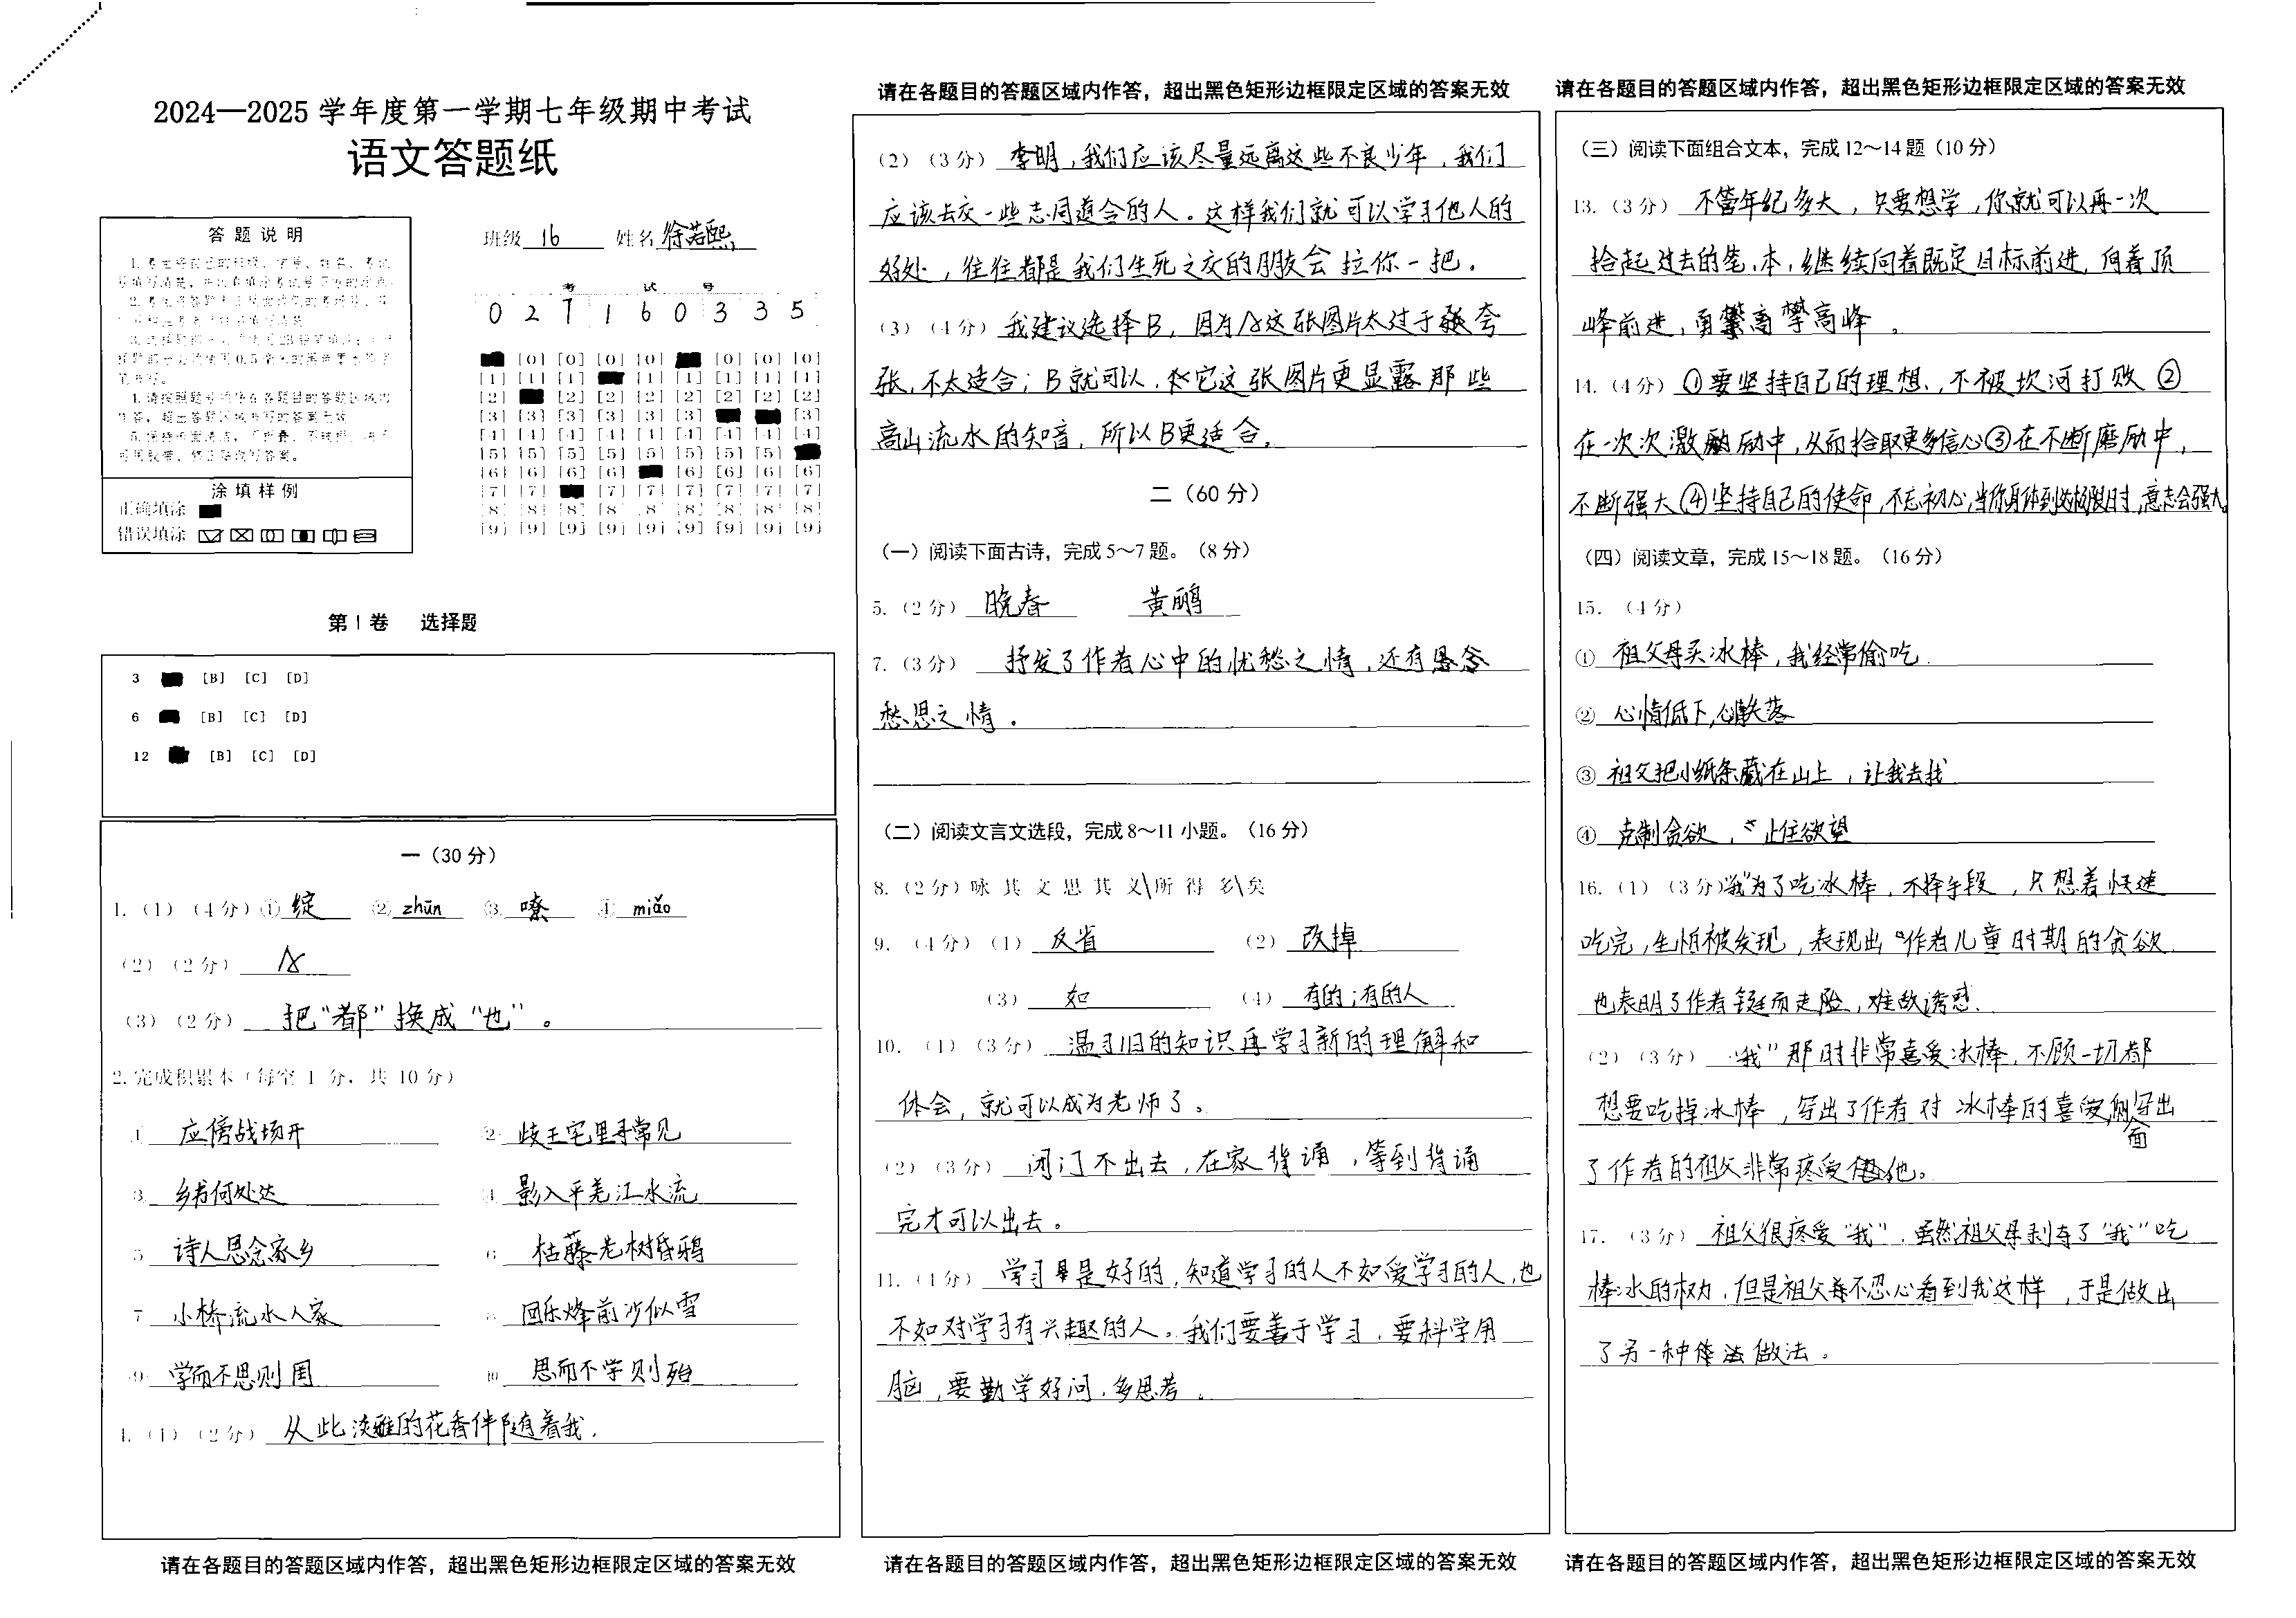 2024—2025 学年度第一学期七年级期中考试
语文答题纸
答 题 说 明
涂 填 样 例
正确填涂
错误填涂
班级 16 姓名 徐若熙
考 试 号
0 2 7 1 6 0 3 3 5
[0] [0] [0] [0] [0] [0] [0]
[1] [1] [1] [1] [1] [1] [1] [1]
[2] [2] [2] [2] [2] [2] [2] [2]
[3] [3] [3] [3] [3] [3] [3]
[4] [4] [4] [4] [4] [4] [4] [4] [4]
[5] [5] [5] [5] [5] [5] [5] [5]
[6] [6] [6] [6] [6] [6] [6] [6]
[7] [7] [7] [7] [7] [7] [7] [7]
[8] [8] [8] [8] [8] [8] [8] [8] [8]
[9] [9] [9] [9] [9] [9] [9] [9] [9]
第 I 卷 选择题
3 [B] [C] [D]
6 [B] [C] [D]
12 [B] [C] [D]
一（30 分）
1.（1）（4 分）① 绽 ② zhūn ③ 嘹 ④ miǎo
（2）（2 分） A
（3）（2 分） 把“都”换成“也”。
2. 完成积累本（每空 1 分，共 10 分）
1 应傍战场开 2 歧王宅里寻常见
3 乡书何处达 4 影入平羌江水流
5 诗人思念家乡 6 枯藤老树昏鸦
7 小桥流水人家 8 回乐烽前沙似雪
9 学而不思则罔 10 思而不学则殆
4.（1）（2 分） 从此淡雅的花香伴随着我.
请在各题目的答题区域内作答，超出黑色矩形边框限定区域的答案无效
请在各题目的答题区域内作答，超出黑色矩形边框限定区域的答案无效
（2）（3 分） 李明，我们应该尽量远离这些不良少年，我们
应该去交一些志同道合的人。这样我们就可以学习他人的
好处，往往都是我们生死之交的朋友会拉你一把.
（3）（4 分） 我建议选择B，因为A这张图片太过于夸
张，不太适合；B就可以，它这张图片更显露那些
高山流水的知音，所以B更适合.
二（60 分）
（一）阅读下面古诗，完成 5～7 题。（8 分）
5.（2 分） 晚春 黄鹂
7.（3 分） 抒发了作者心中的忧愁之情，还有思念
愁思之情.
（二）阅读文言文选段，完成 8～11 小题。（16 分）
8.（2 分）咏 其 文 思 其 义\所 得 多\矣
9.（4 分）（1） 反省 （2） 改掉
（3） 如 （4） 有的；有的人
10.（1）（3 分） 温习旧的知识再学习新的理解和
体会，就可以成为老师了。
（2）（3 分） 闭门不出去，在家背诵，等到背诵
完才可以出去。
11.（4 分） 学习是好的，知道学习的人不如爱学习的人，也
不如对学习有兴趣的人。我们要善于学习，要科学用
脑，要勤学好问，多思考。
请在各题目的答题区域内作答，超出黑色矩形边框限定区域的答案无效
请在各题目的答题区域内作答，超出黑色矩形边框限定区域的答案无效
（三）阅读下面组合文本，完成 12～14 题（10 分）
13.（3 分） 不管年纪多大，只要想学，你就可以再一次
拾起过去的笔、本，继续向着既定目标前进，向着顶
峰前进，勇攀高峰。
14.（4 分） ①要坚持自己的理想，不被坎河打败②
在一次次激励中，从而拾取更多信心③在不断磨励中，
不断强大④坚持自己的使命，不忘初心，当你身体到达极限时，意志会强大。
（四）阅读文章，完成 15～18 题。（16 分）
15.（4 分）
① 祖父母买冰棒，我经常偷吃
② 心情低下，心失落
③ 祖父把小纸条藏在山上，让我去找
④ 克制贪欲，止住欲望
16.（1）（3 分）“我”为了吃冰棒，不择手段，只想着快速
吃完，生怕被发现，表现出作者儿童时期的贪欲
也表明了作者铤而走险，难敌诱惑.
（2）（3 分） “我”那时非常喜爱冰棒，不顾一切都
想要吃掉冰棒，写出了作者对冰棒的喜爱，侧面写出
了作者的祖父非常疼爱他。
17.（3 分） 祖父很疼爱“我”，虽然祖父母剥夺了“我”吃
棒冰的权力，但是祖父母不忍心看到我这样，于是做出
了另一种做法。
请在各题目的答题区域内作答，超出黑色矩形边框限定区域的答案无效